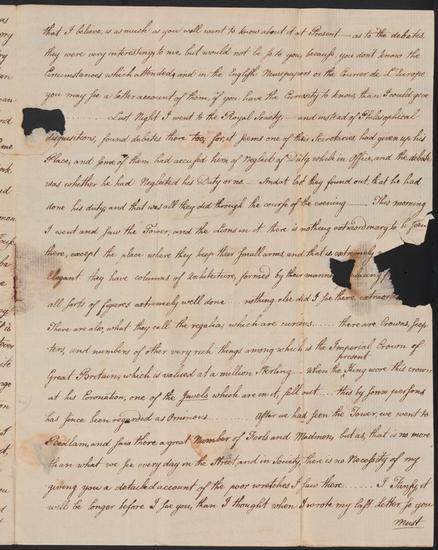 that I believe, is as much as you well want to know about it at Present — as to the debates
they were very interesting to me, but would not be so to you, because, you don't know the
Circumstances which attended, and in the English Newspapers or the Courier de L'Europe
you may see a better account of them, if you have the Curiosity to know, than I could give
Last Night I went to the Royal Society — and instead of Philosophical
disquisitions, found debates there too; for, it seems one of their Secretaries, had given up his
Place, and some of them had accused him of Neglect of Duty while in Office, and the debate
was whether he had Neglected his Duty or no — And at last they found out, that he had
done his duty, and that was all they did through the course of the evening — This morning
I went and saw the Tower, and the Lions in it there is nothing extraordinary to be seen
there, except the place where they keep their small arms, and that is extremely
elegant they have columns of Architecture, formed by their manner
all sorts of figures extremely well done .... nothing else did I see there,
There are also, what they call the regalia, which are curious .... there are Crowns, Scep-
ters, and numbers of other very rich things among which is the Imperial Crown of
Great Bretain, which is valued at a million Sterling — when the present King wore this crown
at his Coronation, one of the Jewels which are in it, fell out .... this by some persons
has since been regarded as Ominous. After we had seen the Tower, we went to
Beadlam, and saw there a great Number of Fools and Madmen, but as, that is no more
than what we see every day in the Street and in Society, there is no Necessity of my
giving you a detached account of the poor wretches I saw there ..... I Fansy, it
will be longer before I see you, than I thought when I wrote my last letter, so you
must